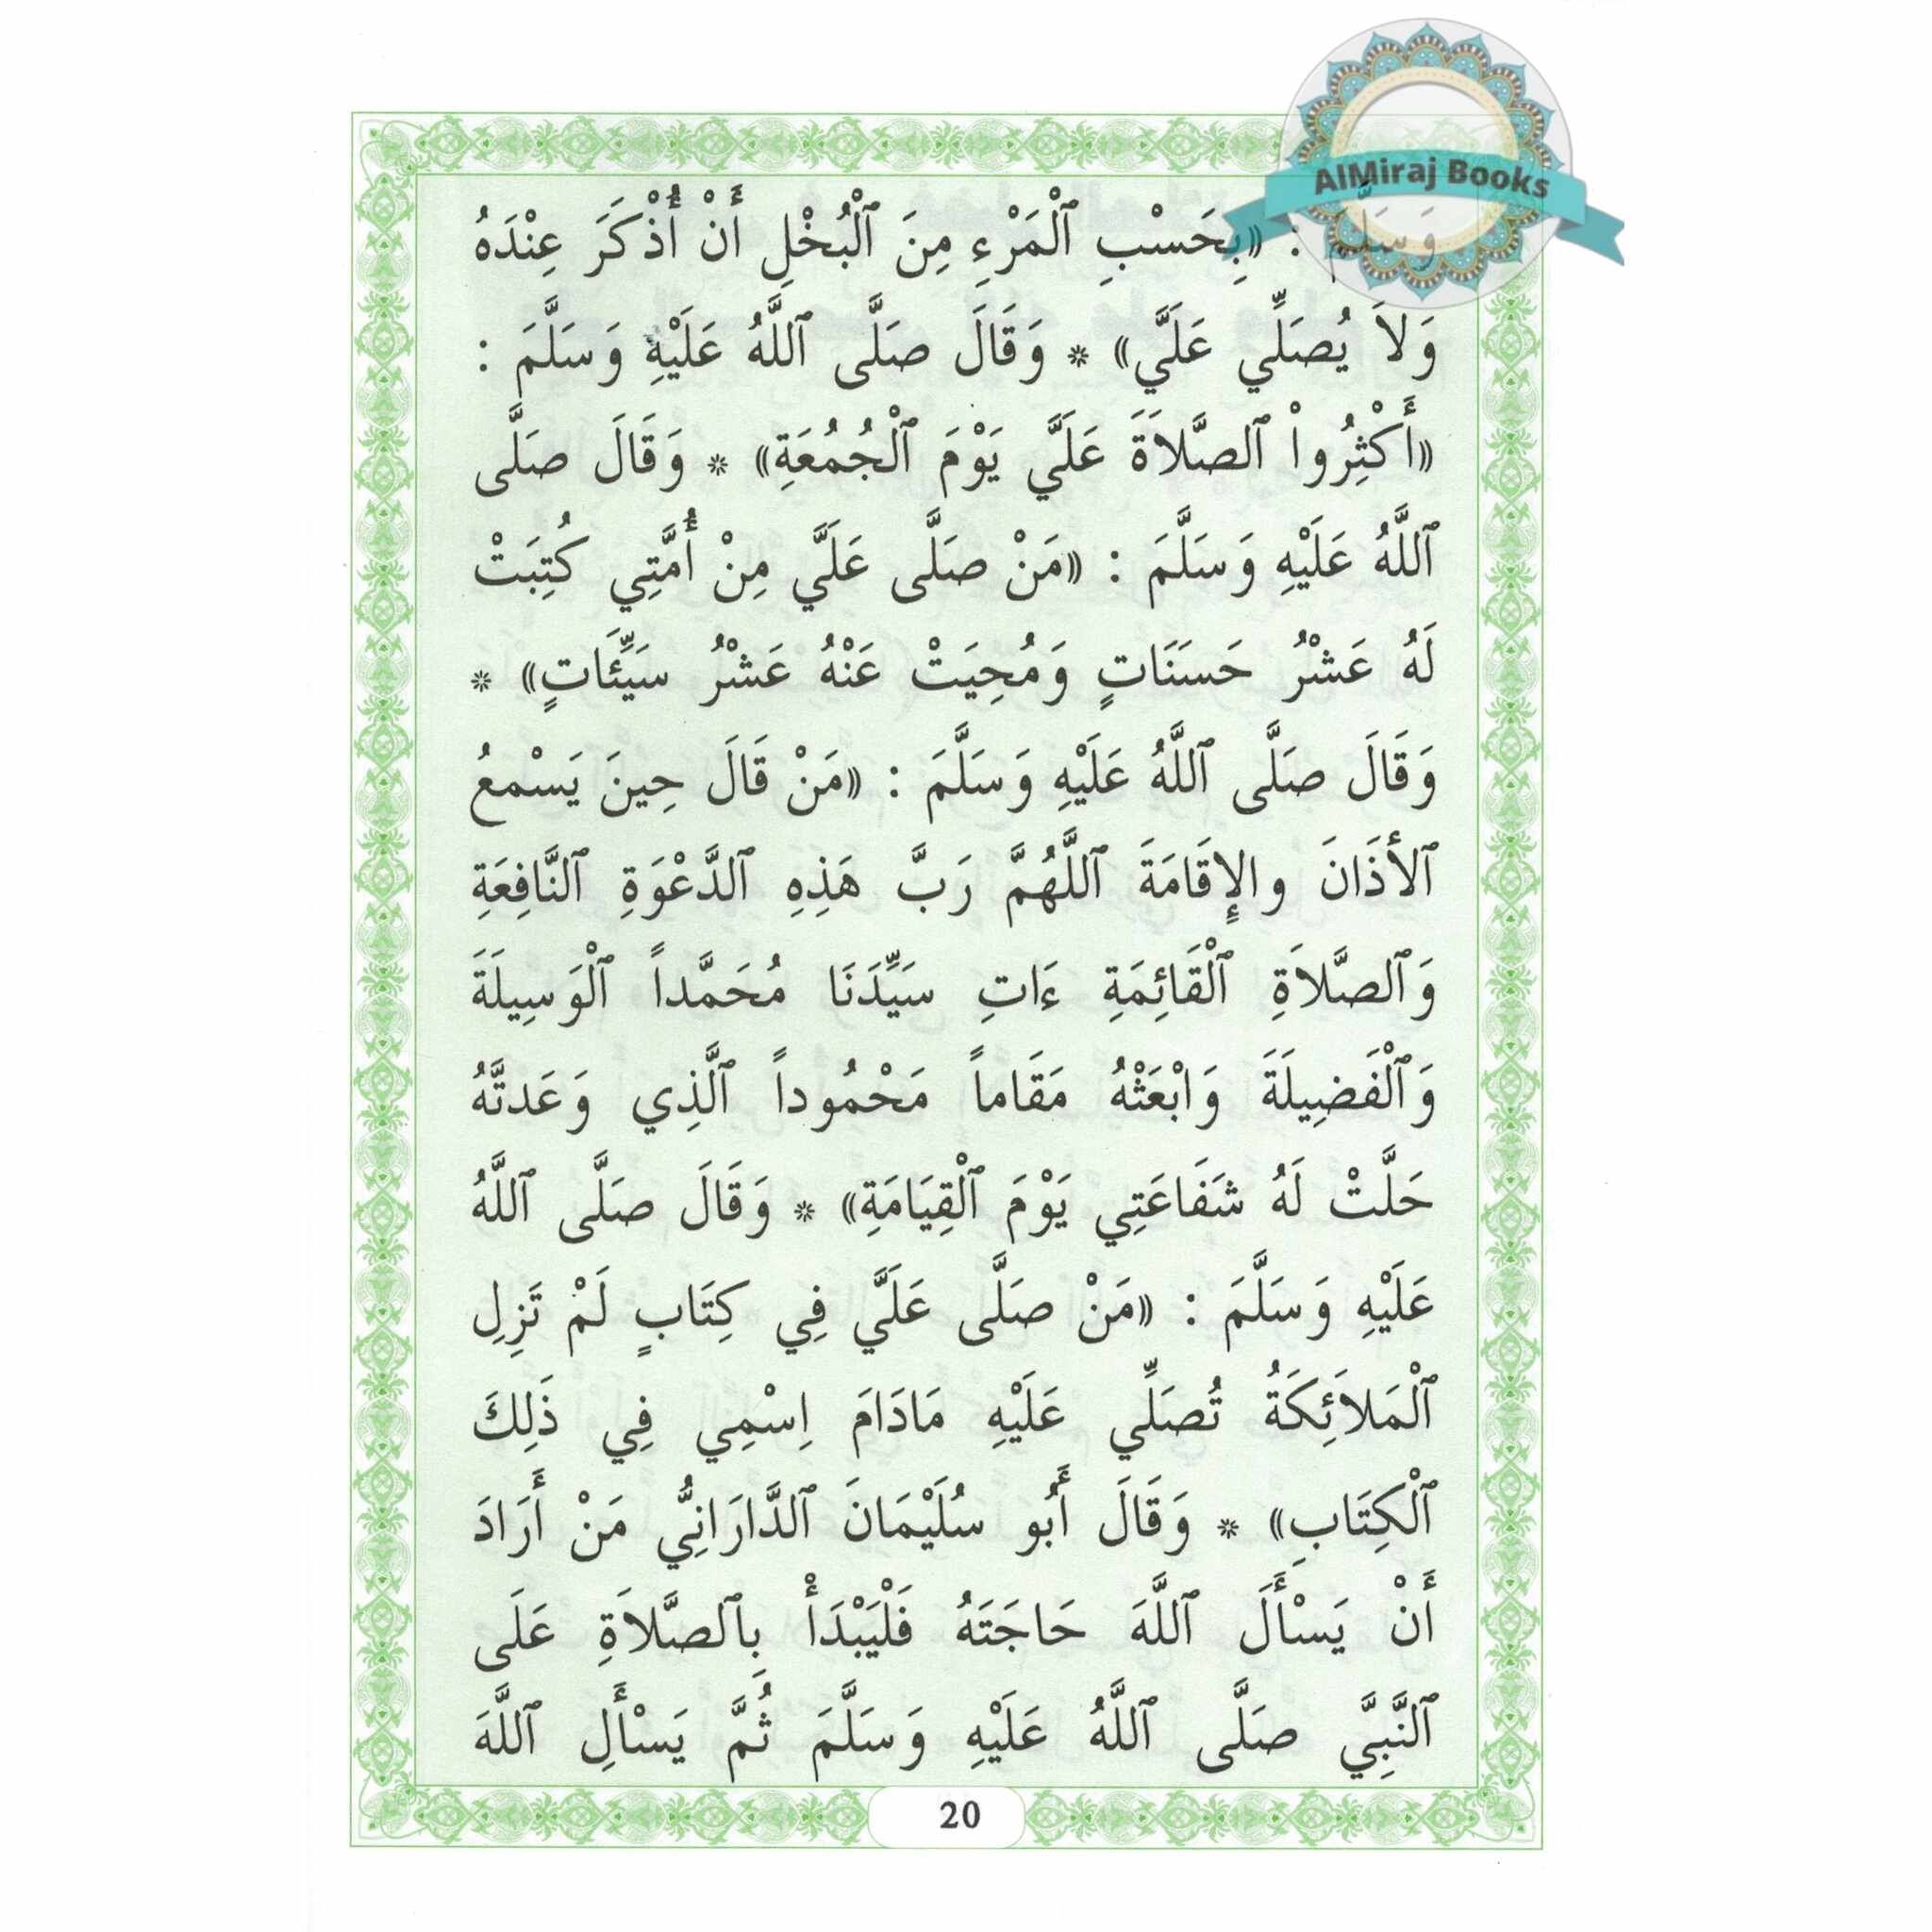 AlMiraj Books
وَسَلَّمَ : «بِحَسْبِ ٱلْمَرْءِ مِنَ ٱلْبُخْلِ أَنْ أُذْكَرَ عِنْدَهُ
وَلاَ يُصَلِّي عَلَيَّ» * وَقَالَ صَلَّى ٱللَّهُ عَلَيْهِ وَسَلَّمَ :
«أَكْثِرُواْ ٱلصَّلاَةَ عَلَيَّ يَوْمَ ٱلْجُمُعَةِ» * وَقَالَ صَلَّى
ٱللَّهُ عَلَيْهِ وَسَلَّمَ : «مَنْ صَلَّى عَلَيَّ مِنْ أُمَّتِي كُتِبَتْ
لَهُ عَشْرُ حَسَنَاتٍ وَمُحِيَتْ عَنْهُ عَشْرُ سَيِّئَاتٍ» *
وَقَالَ صَلَّى ٱللَّهُ عَلَيْهِ وَسَلَّمَ : «مَنْ قَالَ حِينَ يَسْمعُ
ٱلأَذَانَ والإِقَامَةَ ٱللَّهُمَّ رَبَّ هَذِهِ ٱلدَّعْوَةِ ٱلنَّافِعَةِ
وَٱلصَّلاَةِ ٱلْقَائِمَةِ ءَاتِ سَيِّدَنَا مُحَمَّداً ٱلْوَسِيلَةَ
وَٱلْفَضِيلَةَ وَابْعَثْهُ مَقَاماً مَحْمُوداً ٱلَّذِي وَعَدتَّهُ
حَلَّتْ لَهُ شَفَاعَتِي يَوْمَ ٱلْقِيَامَةِ» * وَقَالَ صَلَّى ٱللَّهُ
عَلَيْهِ وَسَلَّمَ : «مَنْ صَلَّى عَلَيَّ فِي كِتَابٍ لَمْ تَزِلِ
ٱلْمَلاَئِكَةُ تُصَلِّي عَلَيْهِ مَادَامَ اِسْمِي فِي ذَلِكَ
ٱلْكِتَابِ» * وَقَالَ أَبُو سُلَيْمَانَ ٱلدَّارَانِيُّ مَنْ أَرَادَ
أَنْ يَسْأَلَ ٱللَّهَ حَاجَتَهُ فَلْيَبْدَأْ بِٱلصَّلاَةِ عَلَى
ٱلنَّبِيَّ صَلَّى ٱللَّهُ عَلَيْهِ وَسَلَّمَ ثُمَّ يَسْأَلِ ٱللَّهَ
20